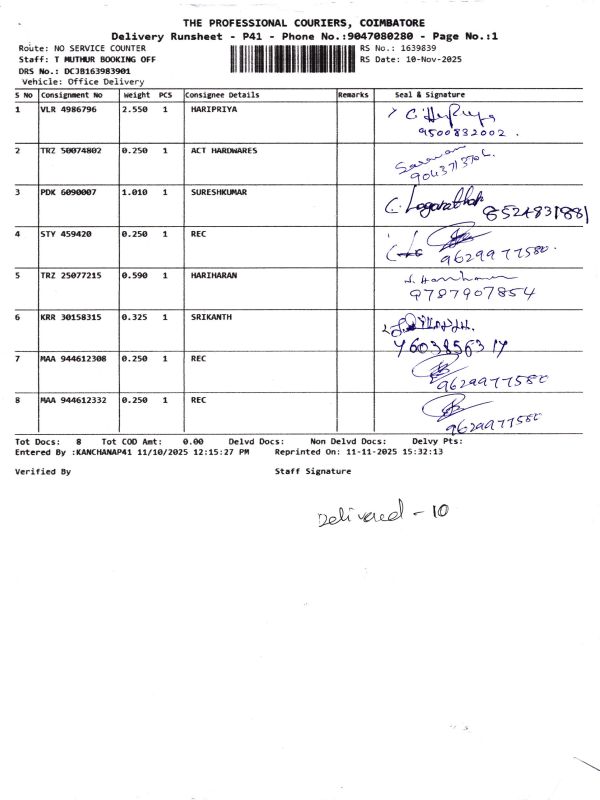 THE PROFESSIONAL COURIERS, COIMBATORE
Delivery Runsheet - P41 - Phone No.:9047080280 - Page No.:1
Route: NO SERVICE COUNTER RS No.: 1639839
Staff: T MUTHUR BOOKING OFF RS Date: 10-Nov-2025
DRS No.: DCJB163983901
Vehicle: Office Delivery
S No Consignment No Weight PCS Consignee Details Remarks Seal & Signature
1 VLR 4986796 2.550 1 HARIPRIYA
9500832002.
2 TRZ 50074802 0.250 1 ACT HARDWARES Saravanan
3 PDK 6090007 1.010 1 SURESHKUMAR
4 STY 459420 0.250 1 REC
9629977580.
5 TRZ 25077215 0.590 1 HARIHARAN
9787907854
6 KRR 30158315 0.325 1 SRIKANTH
7 MAA 944612308 0.250 1 REC
9629977580
8 MAA 944612332 0.250 1 REC
9629977580
Tot Docs: 8 Tot COD Amt: 0.00 Delvd Docs: Non Delvd Docs: Delvy Pts:
Entered By :KANCHANAP41 11/10/2025 12:15:27 PM Reprinted On: 11-11-2025 15:32:13
Verified By Staff Signature
Delivered - 10